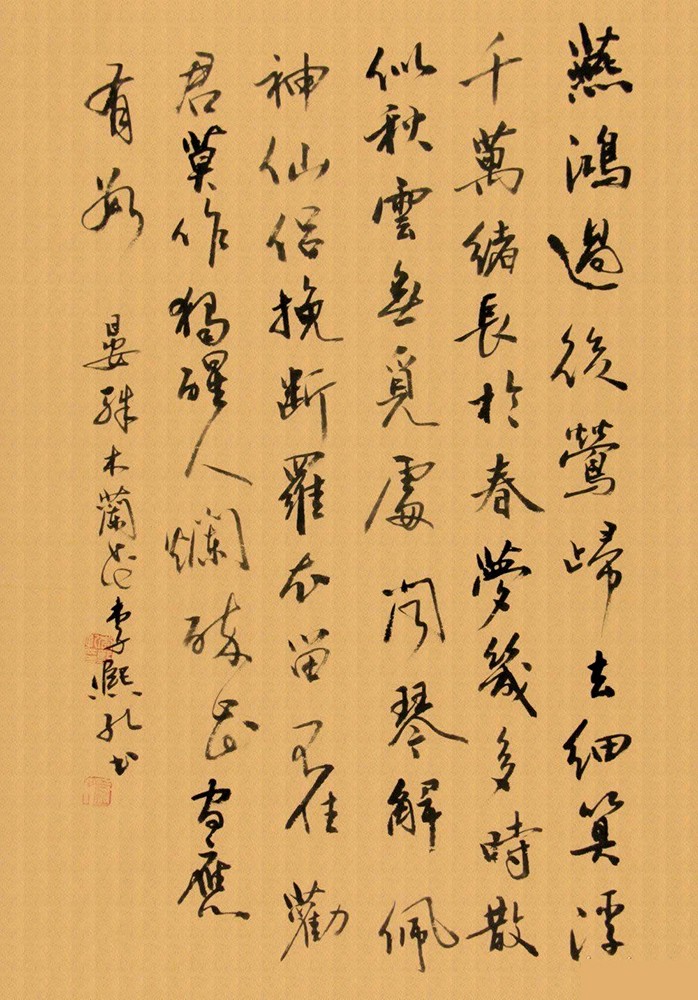 燕鴻過後鶯歸去細算浮
千萬緒長於春夢幾多時散
似秋雲無覓處聞琴解佩
神仙侶挽斷羅衣留不住勸
君莫作獨醒人爛醉花間應
有數
晏殊木蘭花李熙孔書